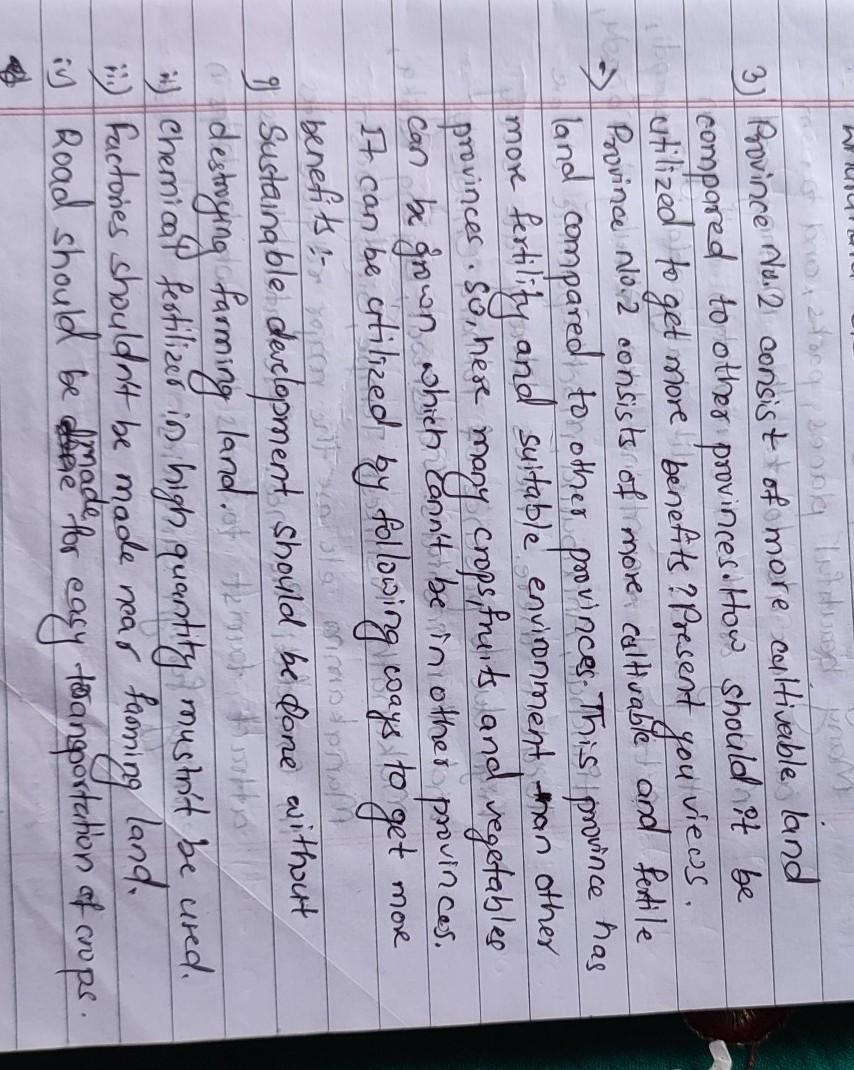 3) Province No.2 consist of more cultivable land
compared to other provinces. How should it be
utilized to get more benefits? Present you views.
→ Province No.2 consists of more cultivable and fertile
land compared to other provinces. This province has
more fertility and suitable environment than other
provinces. So, here many crops, fruits and vegetables
can be grown which cann't be in other provinces.
It can be utilized by following ways to get more
benefits :-
i) Sustainable development should be done without
destroying farming land.
ii) Chemical fertilizer in high quantity mustn't be used.
iii) Factories shouldn't be made near farming land.
iv) Road should be made for easy transportation of crops.